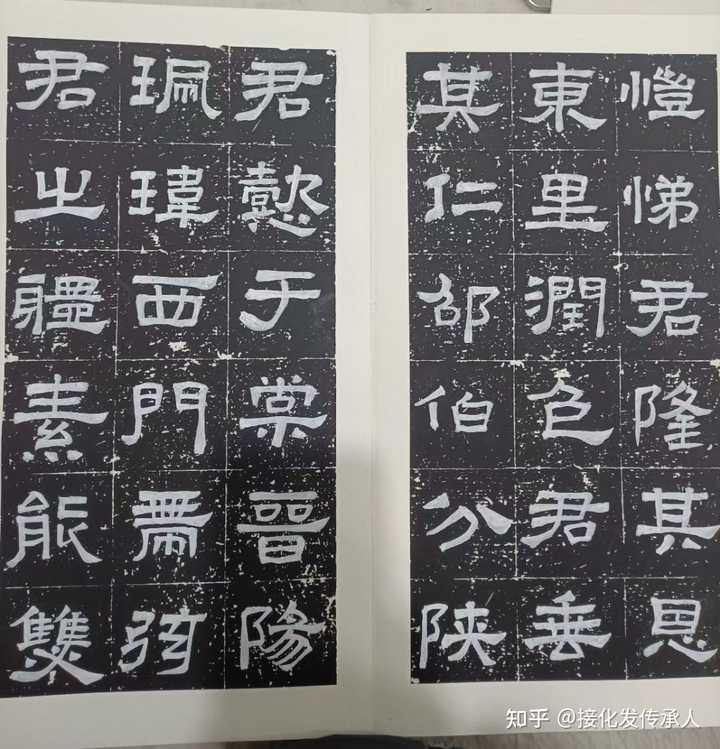 愷悌君隆其恩
東里潤色君垂
其仁邵伯分陝
君懿于棠晉陽
珮瑋西門帶弦
君之體素能雙
知乎 @接化发传承人